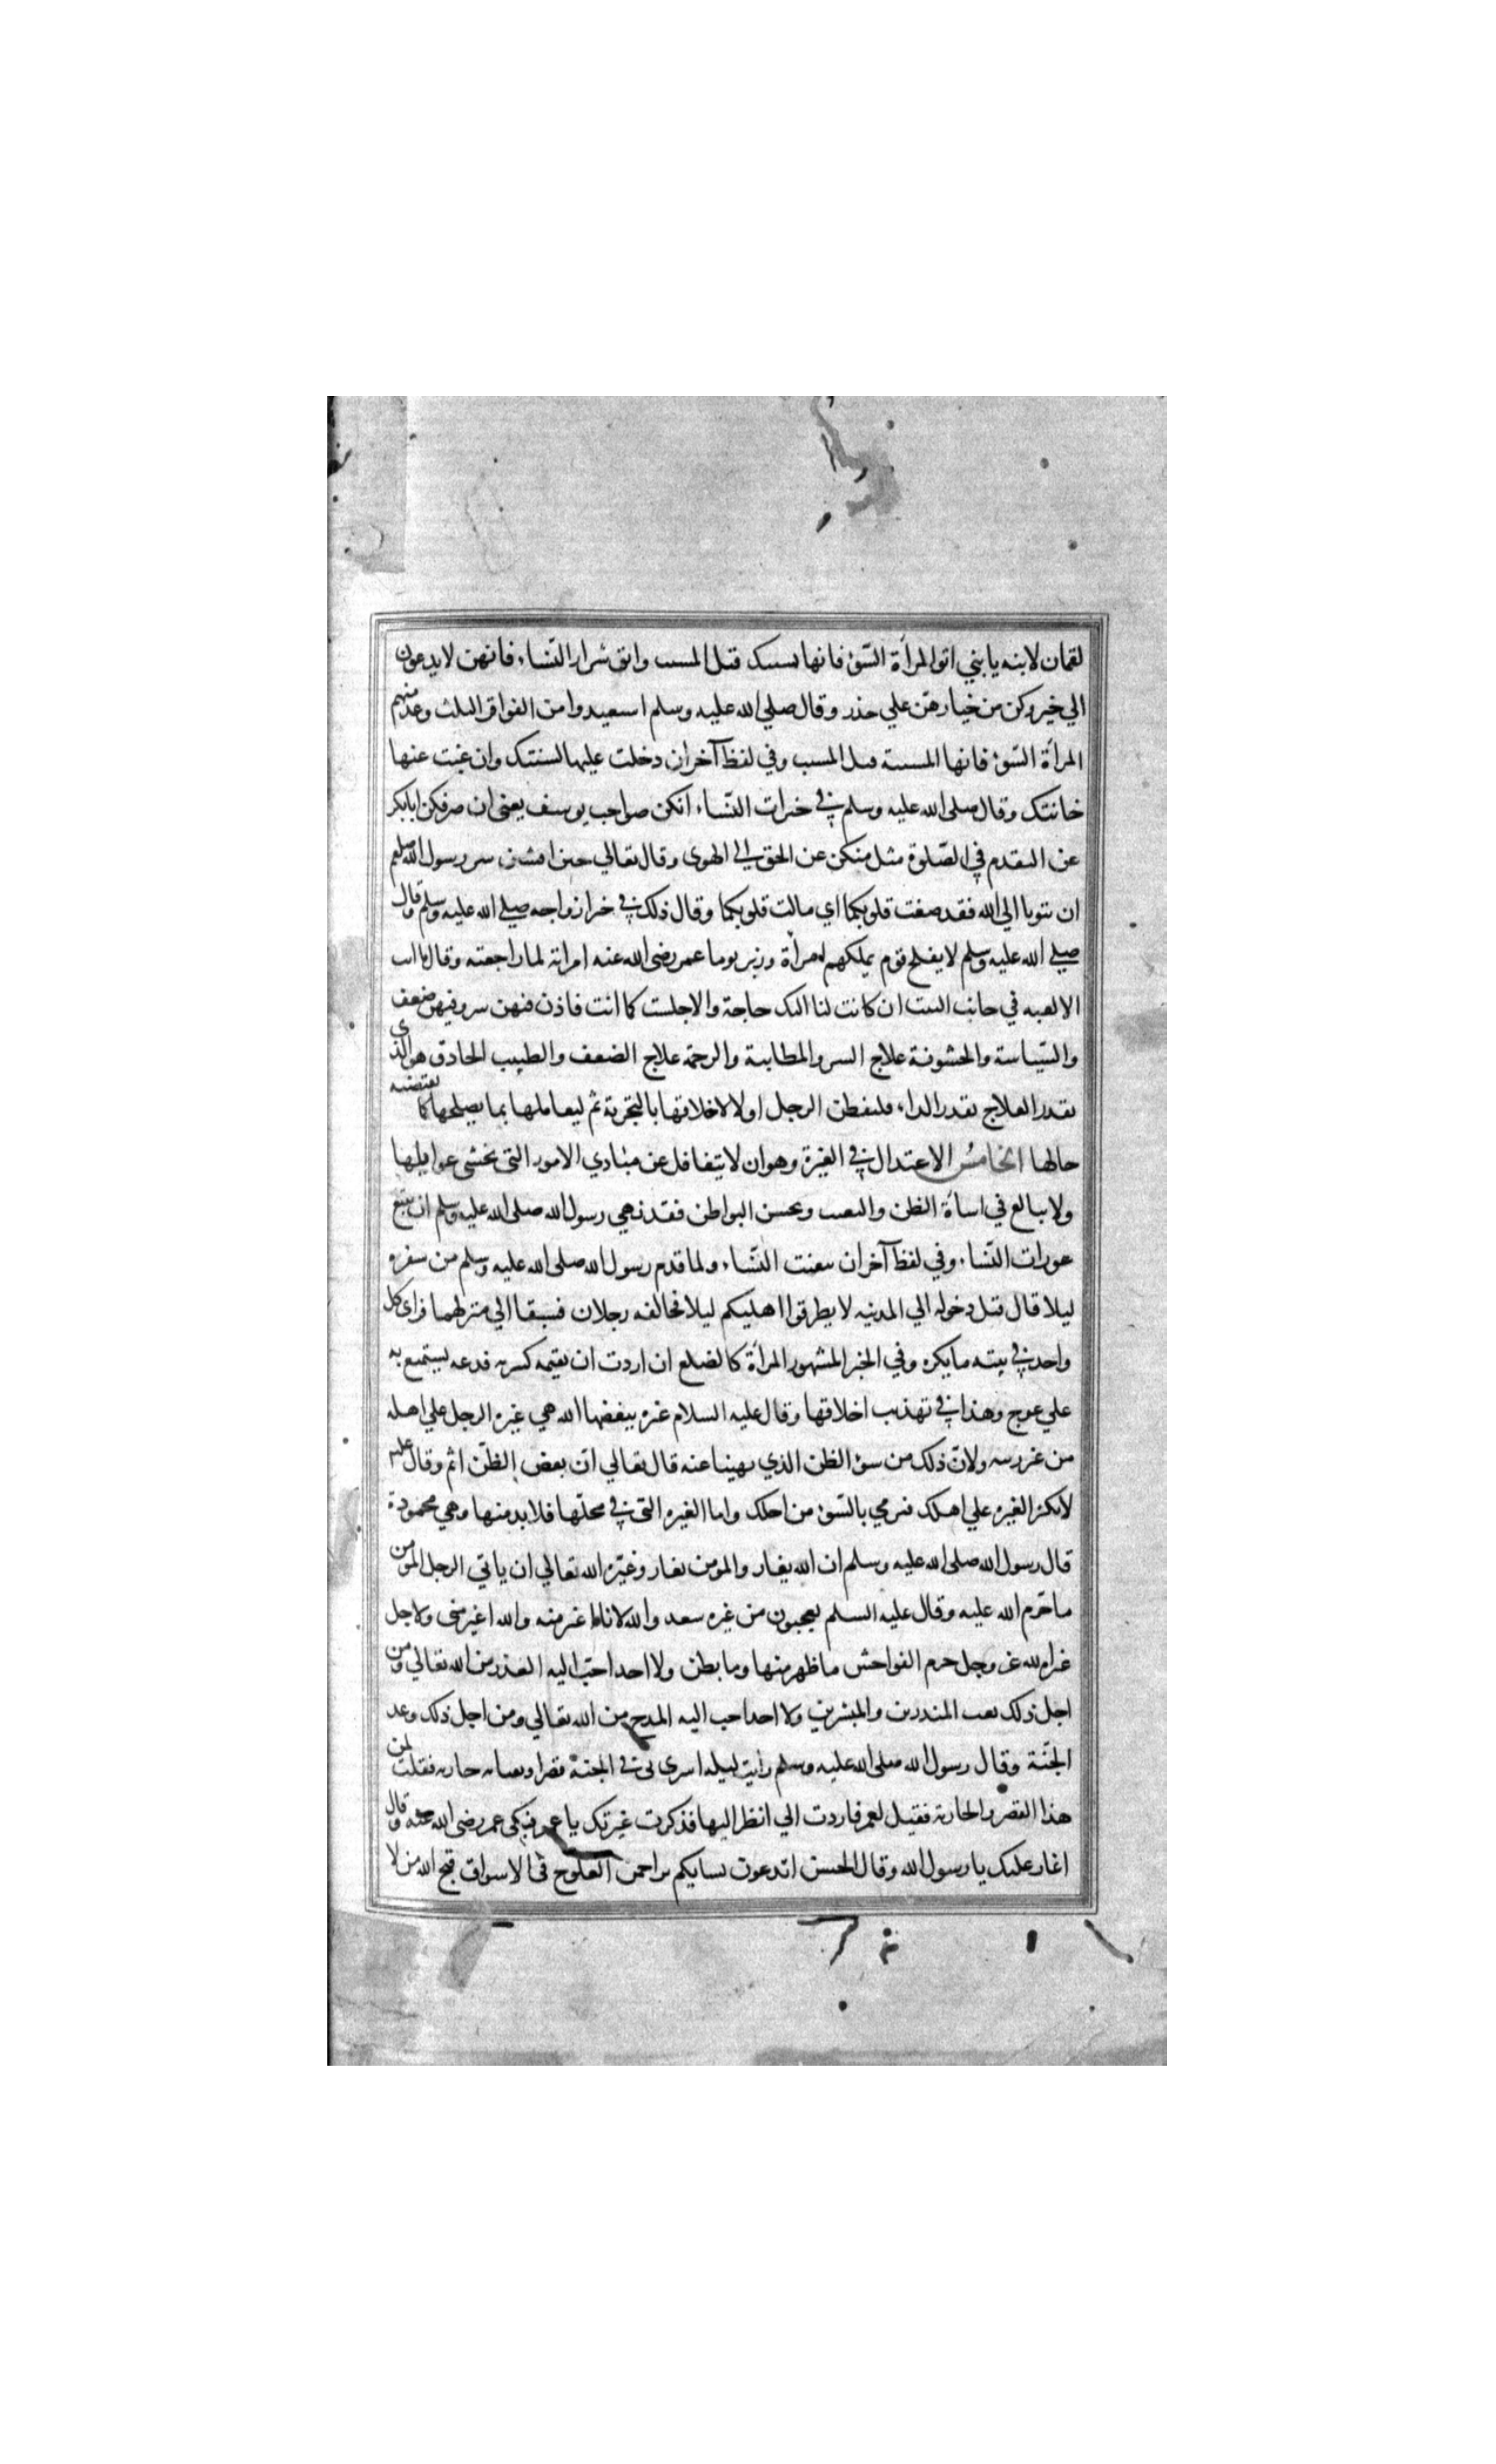 لقمان لابنه يا بني اتق المرأة السّوء فانها تشيبك قبل المشيب واتق شرار النساء فانهن لا يدعون
الي خير وكن من خيارهن علي حذر وقال صلي الله عليه وسلم استعيذوا من الفواقر الثلث وعد منهم
المرأة السّوء فانها المشيبة قبل المشيب وفي لفظ آخر ان دخلت عليها لسنتك وان غبت عنها
خانتك وقال صلى الله عليه وسلم في خيرات النساء انكن صواحب يوسف يعني ان صرفكن ابا بكر
عن التقدم في الصّلوة مثل منكن عن الحق الي الهوى وقال تعالي حين افشين سر رسول الله صلعم
ان تتوبا الي الله فقد صغت قلوبكما اي مالت قلوبكما وقال ذلك في خير ازواجه صلي الله عليه وسلم وقال
صلي الله عليه وسلم لا يفلح قوم يملكهم امرأة وزبر يوما عمر رضى الله عنه امراته لما راجعته وقال ما انت
الا لعبه في جانب البيت ان كانت لنا اليك حاجة والا جلست كما انت فاذن فيهن شر وفيهن ضعف
والسّياسة والخشونة علاج الشر والمطايبة والرحمة علاج الضعف والطبيب الحاذق هو الذى
يقدر العلاج بقدر الداء فلينظر الرجل اولا لاخلاقها بالتجربة ثم ليعاملها بما يصلحها كما يقتضيه
حالها الخامس الاعتدال في الغيرة وهو ان لا يتغافل عن مبادي الامور التي تخشى غوايلها
ولا يبالغ في اساءة الظن والتعنت وتجسس البواطن فقد نهي رسول الله صلى الله عليه وسلم ان تتبع
عورات النّساء وفي لفظ آخر ان تبغت النّساء ولما قدم رسول الله صلى الله عليه وسلم من سفره
ليلا قال قبل دخوله الي المدينه لا تطرقوا اهليكم ليلا فخالفه رجلان فسبقا الي منزلهما فراى كل
واحد في بيته ما يكره وفي الخبر المشهور المرأة كالضلع ان اردت ان تقيمه كسرته فدعه تستمتع به
علي عوج وهذا في تهذيب اخلاقها وقال عليه السلام غيرة يبغضها الله هي غيرة الرجل علي اهله
من غير ريبه ولانّ ذلك من سوء الظن الذي نهينا عنه قال تعالي انّ بعض الظّن اثم وقال علي
لا تكثر الغيرة علي اهلك فترمي بالسّوء من اجلك واما الغيرة التي في محلّها فلا بد منها وهي محمودة
قال رسول الله صلى الله عليه وسلم ان الله يغار والمومن يغار وغيرة الله تعالي ان ياتي الرجل المومن
ما حرّم الله عليه وقال عليه السلم تعجبون من غيرة سعد والله لانا اغير منه والله اغير مني ولاجل
غيرة الله عز وجل حرم الفواحش ما ظهر منها وما بطن ولا احد احبّ اليه العذر من الله تعالي ومن
اجل ذلك بعث المنذرين والمبشرين ولا احد احب اليه المدح من الله تعالي ومن اجل ذلك وعد
الجنّة وقال رسول الله صلى الله عليه وسلم رايت ليلة اسرى بى في الجنة قصرا وبفنائه جارية فقلت لمن
هذا القصر والجارية فقيل لعمر فاردت الي انظر اليها فذكرت غيرتك يا عمر فبكى عمر رضى الله عنه وقال
اغار عليك يا رسول الله وقال الحسن اتدعون نسايكم يزاحمن العلوج في الاسواق قبح الله من لا